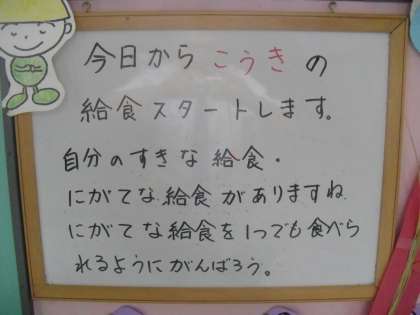 今日から こうき の
給食スタートします。
自分のすきな給食・
にがてな給食がありますね
にがてな給食を1つでも食べら
れるようにがんばろう。